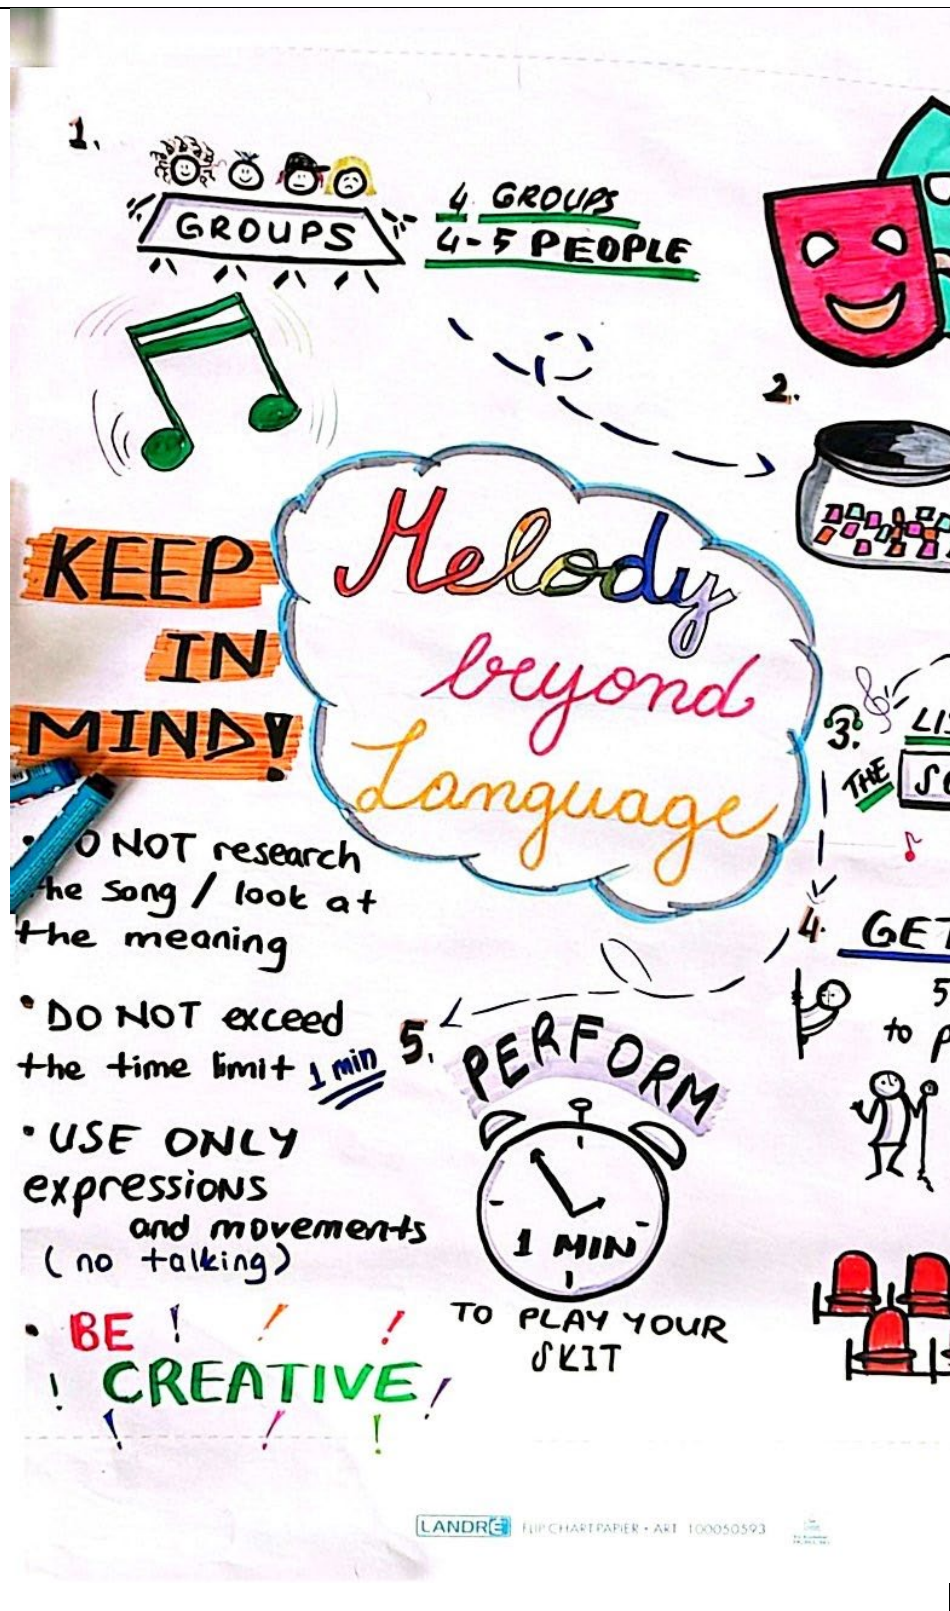 1.
GROUPS
4 GROUPS
4-5 PEOPLE
2.
Melody
beyond
Language
KEEP
IN
MIND!
3.
THE
• O NOT research
he song / look at
the meaning
• DO NOT exceed
the time limit 1 min
• USE ONLY
expressions
and movements
(no talking)
• BE !
! CREATIVE!
4.
GET
5
to
5.
PERFORM
1 MIN
TO PLAY YOUR
SKIT
LANDRÉ FLIPCHARTPAPIER • ART 100050593